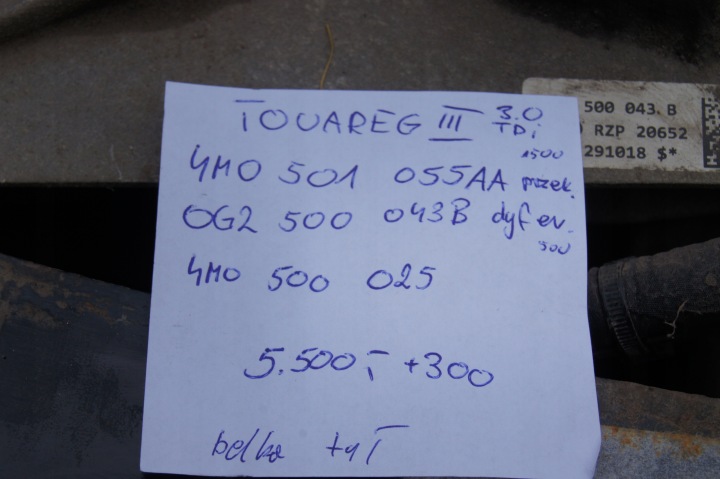 TOUAREG III 3.0 TDi
1500
4M0 501 055AA przek.
0G2 500 043B dyfer.
500
4M0 500 025
5.500,- +300
belka tył
500 043 B
RZP 20652
291018 $*